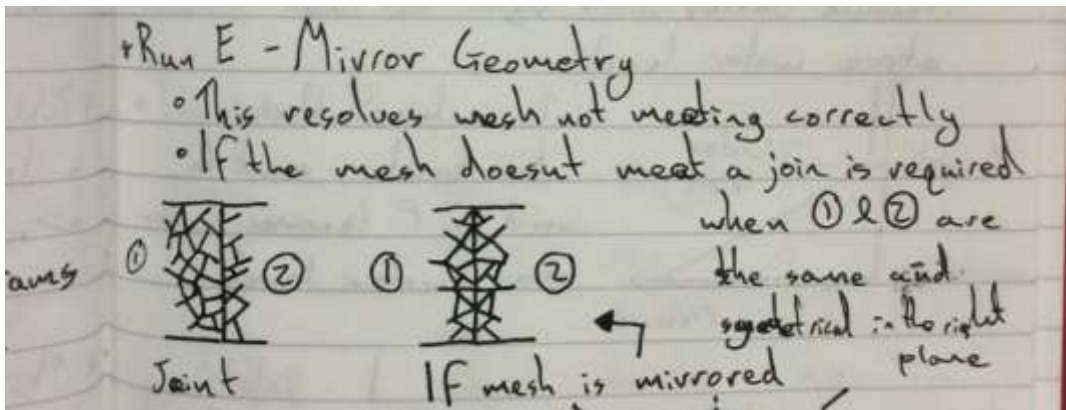 Run E - Mirror Geometry
• This resolves mesh not meeting correctly
• If the mesh doesnt meet a join is required
when ① & ② are
the same and
symetrical in the right
plane
ams
① ② ① ②
Joint
If mesh is mirrored